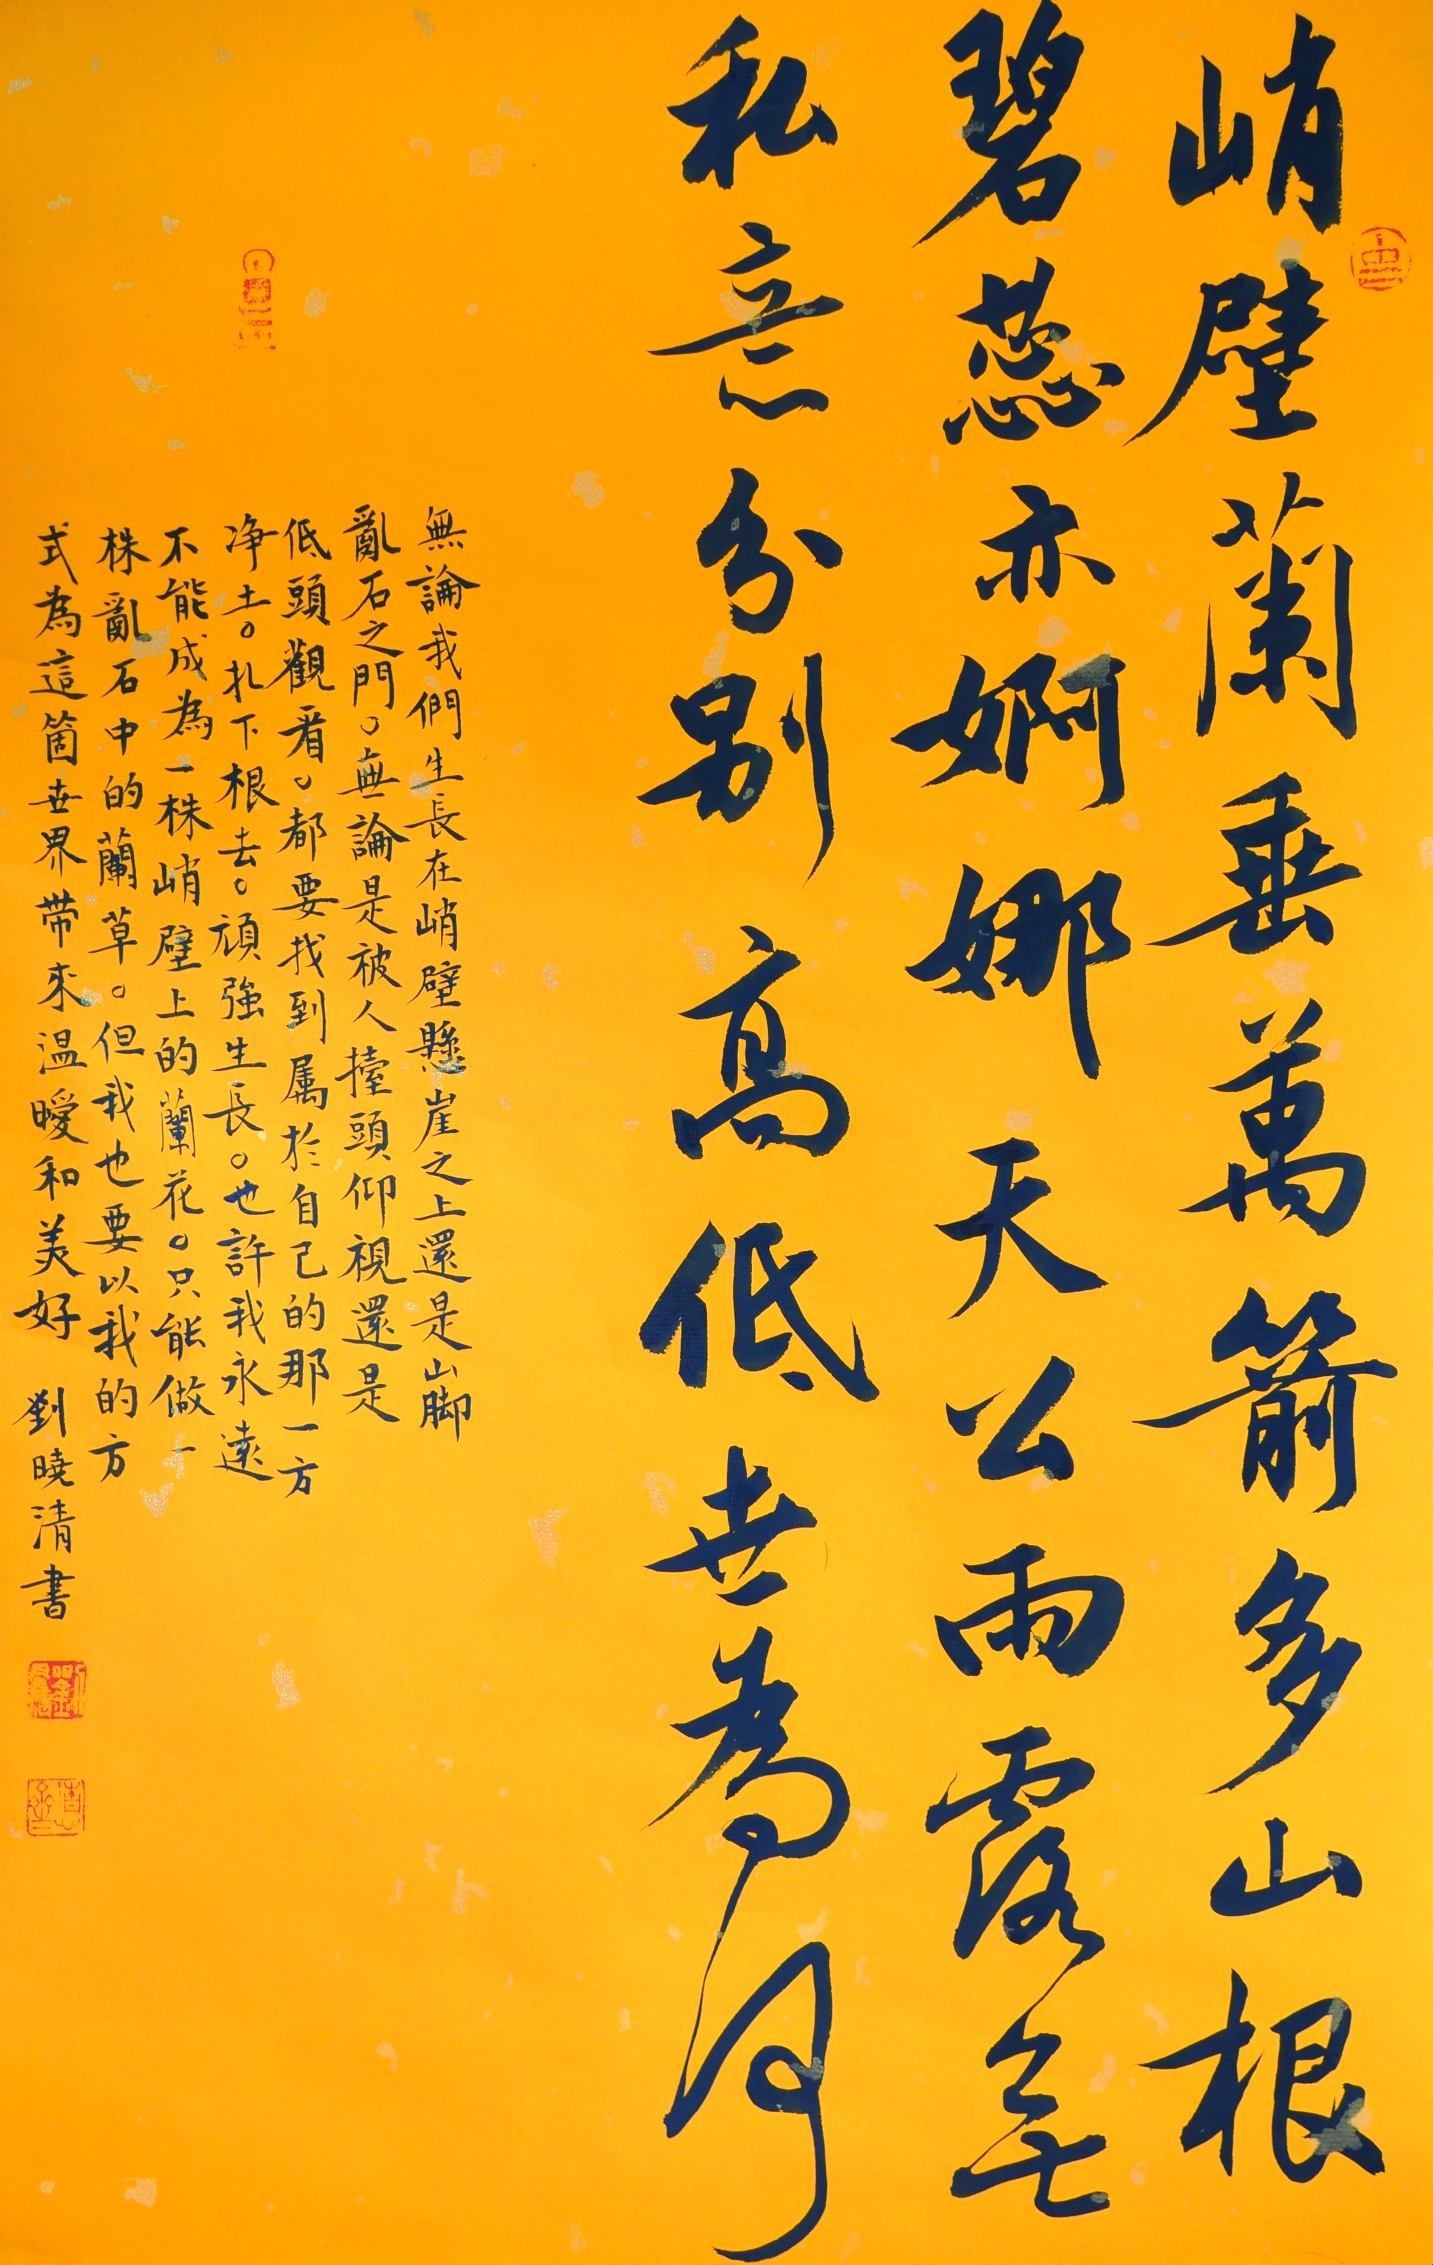 峭壁蘭垂萬箭多山根
碧蕊亦婀娜天公雨露無
私意分別高低世為何
無論我們生長在峭壁懸崖之上還是山脚
亂石之門。無論是被人擡頭仰視還是
低頭觀看。都要找到属於自己的那一方
净土。扎下根去。頑強生長。也許我永遠
不能成為一株峭壁上的蘭花。只能做一
株亂石中的蘭草。但我也要以我的方
式為這箇世界带來温曖和美好 劉曉清書